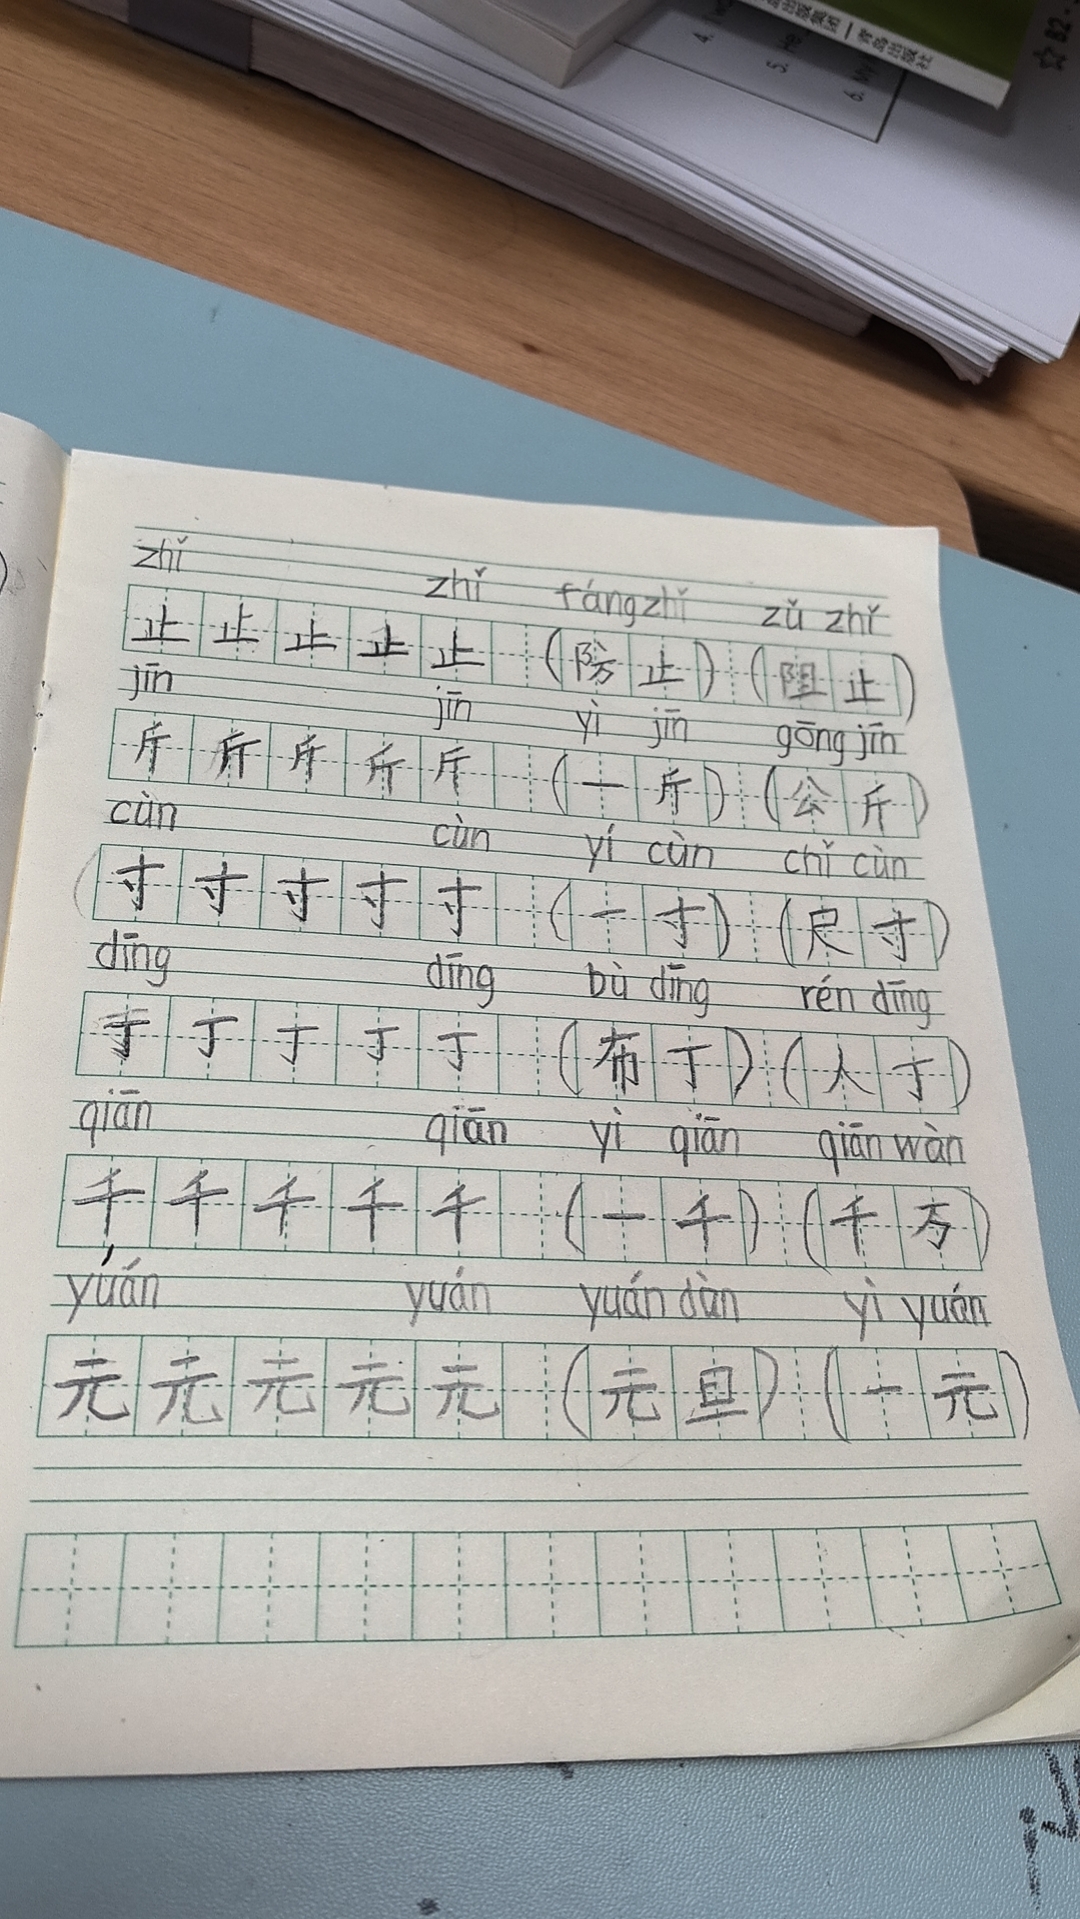 4.
5. He
6. My
出版集团 一 青岛出版社
☆ B2
zhǐ zhǐ fángzhǐ zǔ zhǐ
止 止 止 止 止 (防止) (阻止)
jīn jīn yì jīn gōng jīn
斤 斤 斤 斤 斤 (一斤) (公斤)
cùn cùn yí cùn chǐ cùn
寸 寸 寸 寸 寸 (一寸) (尺寸)
dīng dīng bù dīng rén dīng
丁 丁 丁 丁 丁 (布丁) (人丁)
qiān qiān yì qiān qiān wàn
千 千 千 千 千 (一千) (千万)
yuán yuán yuán dàn yì yuán
元 元 元 元 元 (元旦) (一元)